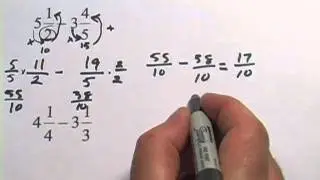 5 1/2 - 3 4/5 +
10 15
5/5 × 11/2 - 19/5 · 2/2 55/10 - 38/10 = 17/10
55/10 38/10
4 1/4 - 3 1/3